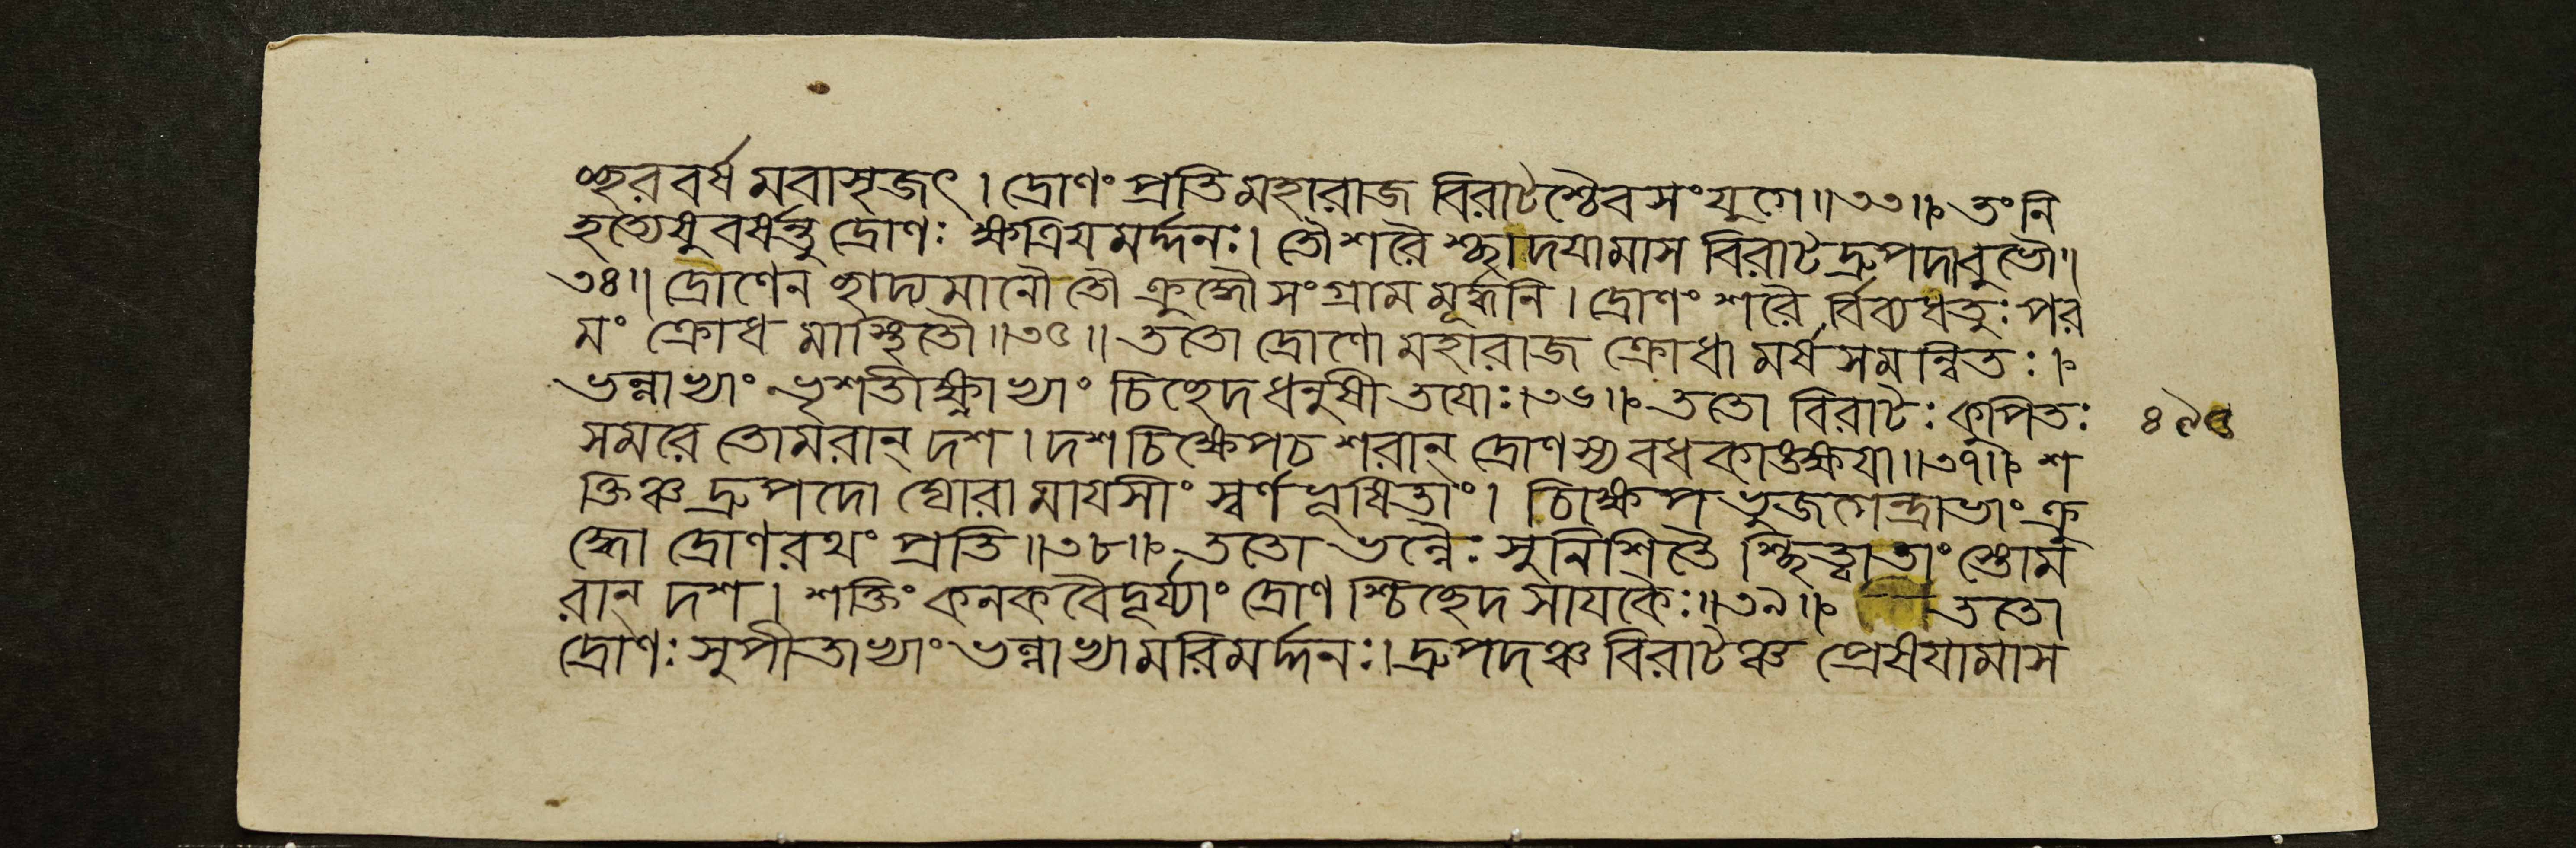 ঞ্ছরবর্ষমবাসৃজৎ । দ্রোণং প্রতি মহারাজ বিরাটশ্চৈব সংযুগে ॥ ৩৩ ॥ তং নি
হত্যেষুবর্ষন্তু দ্রোণঃ ক্ষত্রিযমর্দ্দনঃ । তৌ শরৈশ্ছাদযামাস বিরাটদ্রুপদাবুভৌ ॥
৩৪ ॥ দ্রোণেন ছাদ্যমানৌ তৌ ক্রুদ্ধৌ সংগ্রামমূর্দ্ধনি । দ্রোণং শরৈর্বিব্যধতুঃ পর
মং ক্রোধমাস্থিতৌ ॥ ৩৫ ॥ ততো দ্রোণো মহারাজ ক্রোধামর্ষসমন্বিতঃ ।
ভল্লাভ্যাং ভৃশতীক্ষ্ণাভ্যাং চিচ্ছেদ ধনুষী তযোঃ । ৩৬ ॥ ততো বিরাটঃ কুপিতঃ
সমরে তোমরান্ দশ । দশ চিক্ষেপ চ শরান্ দ্রোণস্য বধকাঙ্ক্ষযা ॥ ৩৭ ॥ শ
ক্তিঞ্চ দ্রুপদো ঘোরামাযসীং স্বর্ণভূষিতাং । চিক্ষেপ ভুজগেন্দ্রাভাং ক্রু
দ্ধো দ্রোণরথং প্রতি ॥ ৩৮ ॥ ততো ভল্লৈঃ সুনিশিতৈশ্ছিত্ত্বা তাংস্তোম
রান্ দশ । শক্তিং কনকবৈদূর্য্যাং দ্রোণশ্চিচ্ছেদ সাযকৈঃ ॥ ৩৯ ॥ ততো
দ্রোণঃ সুপীতাভ্যাং ভল্লাভ্যামরিমর্দ্দনঃ । দ্রুপদঞ্চ বিরাটঞ্চ প্রেষযামাস